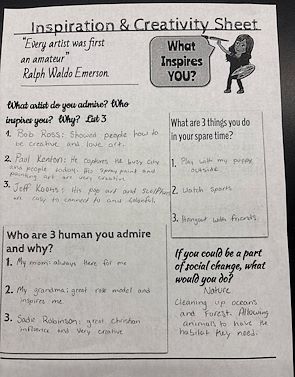 Inspiration & Creativity Sheet
"Every artist was first
an amateur"
Ralph Waldo Emerson.
What
Inspires
YOU?
What artist do you admire? Who
inspires you? Why? List 3
1. Bob Ross: Showed people how to
be creative and love art.
2. Paul Kenton: He captures the busy city
and people today. His spray paint and
painting art are very creative.
3. Jeff Koons: His pop art and sculptures
are easy to connect to and colorful.
What are 3 things you do
in your spare time?
1. Play with my puppy
outside.
2. Watch sports.
3. Hangout with friends.
Who are 3 human you admire
and why?
1. My mom: always there for me
2. My grandma: great role model and
inspires me.
3. Sadie Robinson: great christian
influence and very creative
If you could be a part
of social change, what
would you do?
Nature
Cleaning up oceans
and forest. Allowing
animals to have the
habitat they need.